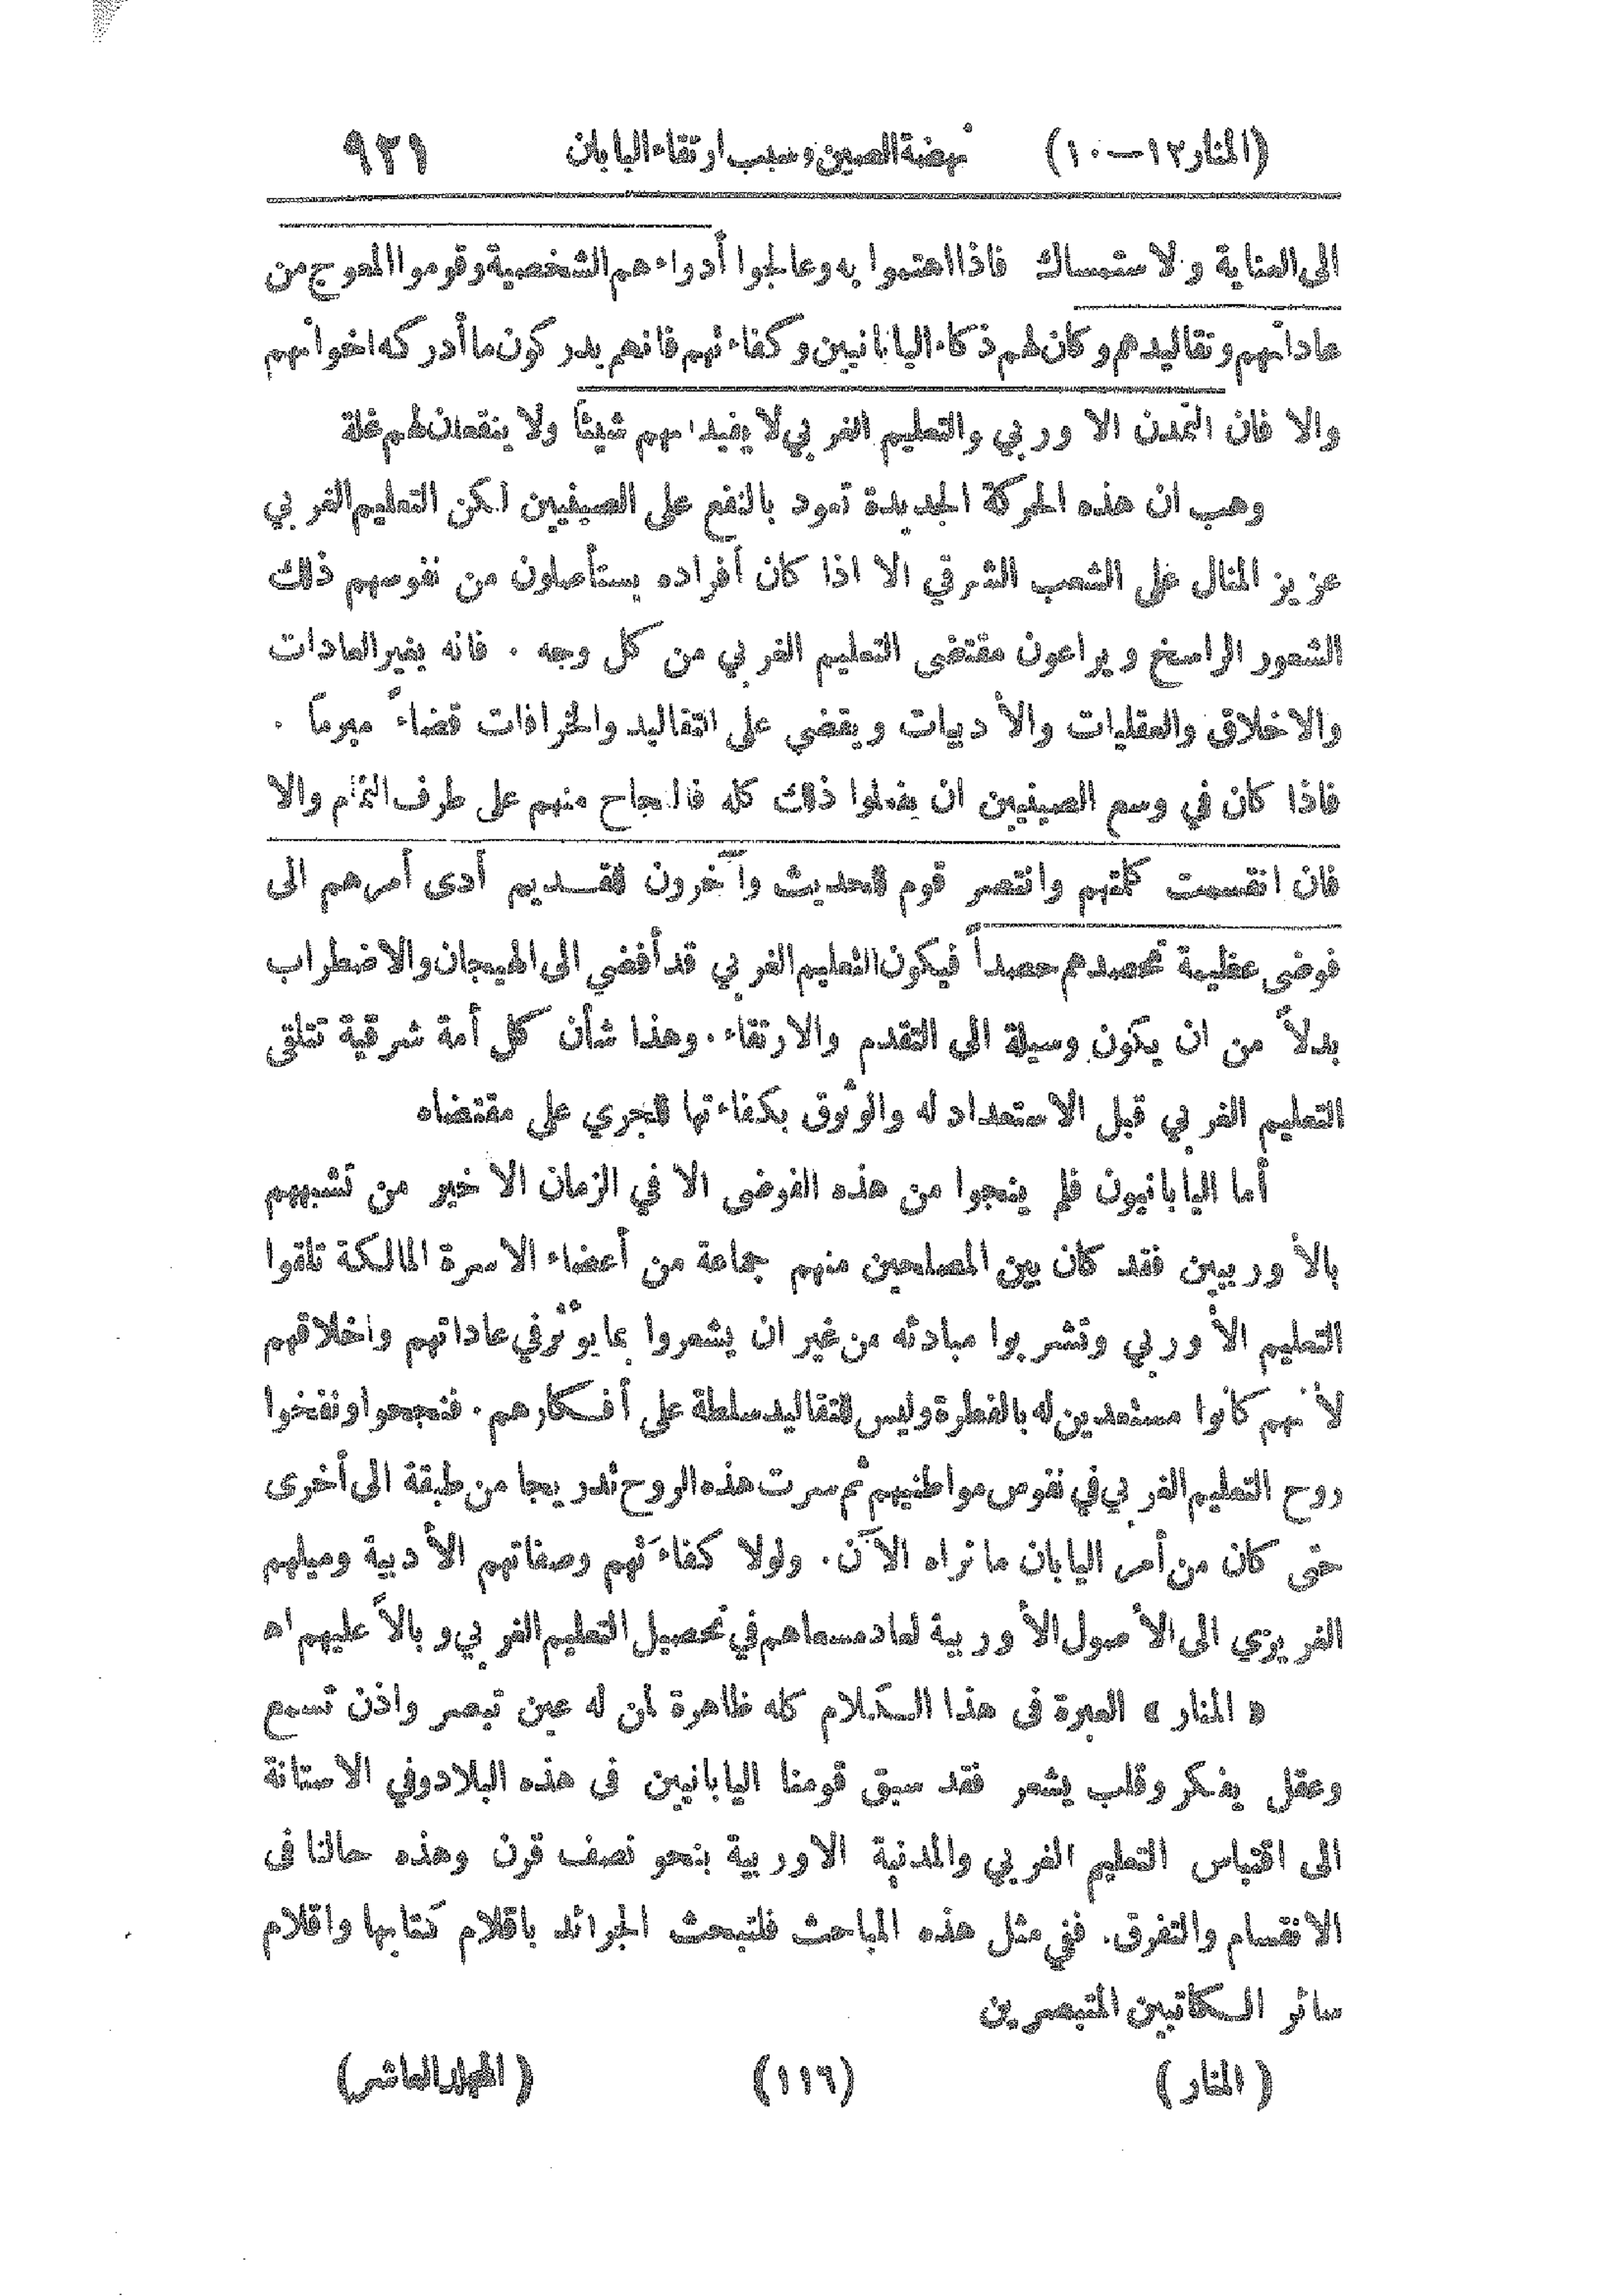 (المنار ١٢—١٠) نهضة الصين وسبب ارتقاء اليابان ٩٢١
الى العناية ولاستمساك فاذا اهتموا به وعالجوا أدواءهم الشخصية وقوموا المعوج من
عاداتهم وتقاليدهم وكان لهم ذكاء اليابانيين وكفاءتهم فانهم يدركون ما أدركه اخوانهم
والا فان التمدن الاوربي والتعليم الغربي لا يفيدانهم شيئاً ولا ينقعان لهم غلة
وهب ان هذه الحركة الجديدة تعود بالنفع على الصينيين لكن التعليم الغربي
عزيز المنال على الشعب الشرقي الا اذا كان أفراده يستأصلون من نفوسهم ذلك
الشعور الراسخ ويراعون مقتضى التعليم الغربي من كل وجه . فانه يغير العادات
والاخلاق والعقليات والأدبيات ويقضي على التقاليد والخرافات قضاءً مبرماً .
فاذا كان في وسع الصينيين ان يفعلوا ذلك كله فالنجاح منهم على طرف الثمام والا
فان انقسمت كلمتهم وانتصر قوم للحديث وآخرون للقديم أدى أمرهم الى
فوضى عظيمة تحصدهم حصداً فيكون التعليم الغربي قد أفضي الى الهيجان والاضطراب
بدلاً من ان يكون وسيلة الى التقدم والارتقاء . وهذا شأن كل أمة شرقية تتلقى
التعليم الغربي قبل الاستعداد له والوثوق بكفاءتها للجري على مقتضاه
أما اليابانيون فلم ينجوا من هذه الفوضى الا في الزمان الاخير من تشبههم
بالأوربيين فقد كان بين المصلحين منهم جماعة من أعضاء الاسرة المالكة تلقوا
التعليم الأوربي وتشربوا مبادئه من غير ان يشعروا بما يؤثر في عاداتهم واخلاقهم
لأنهم كانوا مستعدين له بالفطرة وليس للتقاليد سلطة على أفكارهم . فنجحوا ونفخوا
روح التعليم الغربي في نفوس مواطنيهم ثم سرت هذه الروح تدريجا من طبقة الى أخرى
حتى كان من أمر اليابان ما نراه الآن . ولولا كفاءتهم وصفاتهم الأدبية وميلهم
الغريزي الى الأصول الأوربية لعاد مسعاهم في تحصيل التعليم الغربي وبالاً عليهم اه
« المنار » العبرة فى هذا الكلام كله ظاهرة لمن له عين تبصر واذن تسمع
وعقل يفكر وقلب يشعر فقد سبق قومنا اليابانيين فى هذه البلاد وفي الاستانة
الى اقتباس التعليم الغربي والمدنية الاوربية بنحو نصف قرن وهذه حالنا فى
الانقسام والتفرق. ففي مثل هذه المباحث فلتبحث الجرائد باقلام كتابها واقلام
سائر الكاتبين المتبصرين
(المنار) (١١٦) (المجلد العاشر)